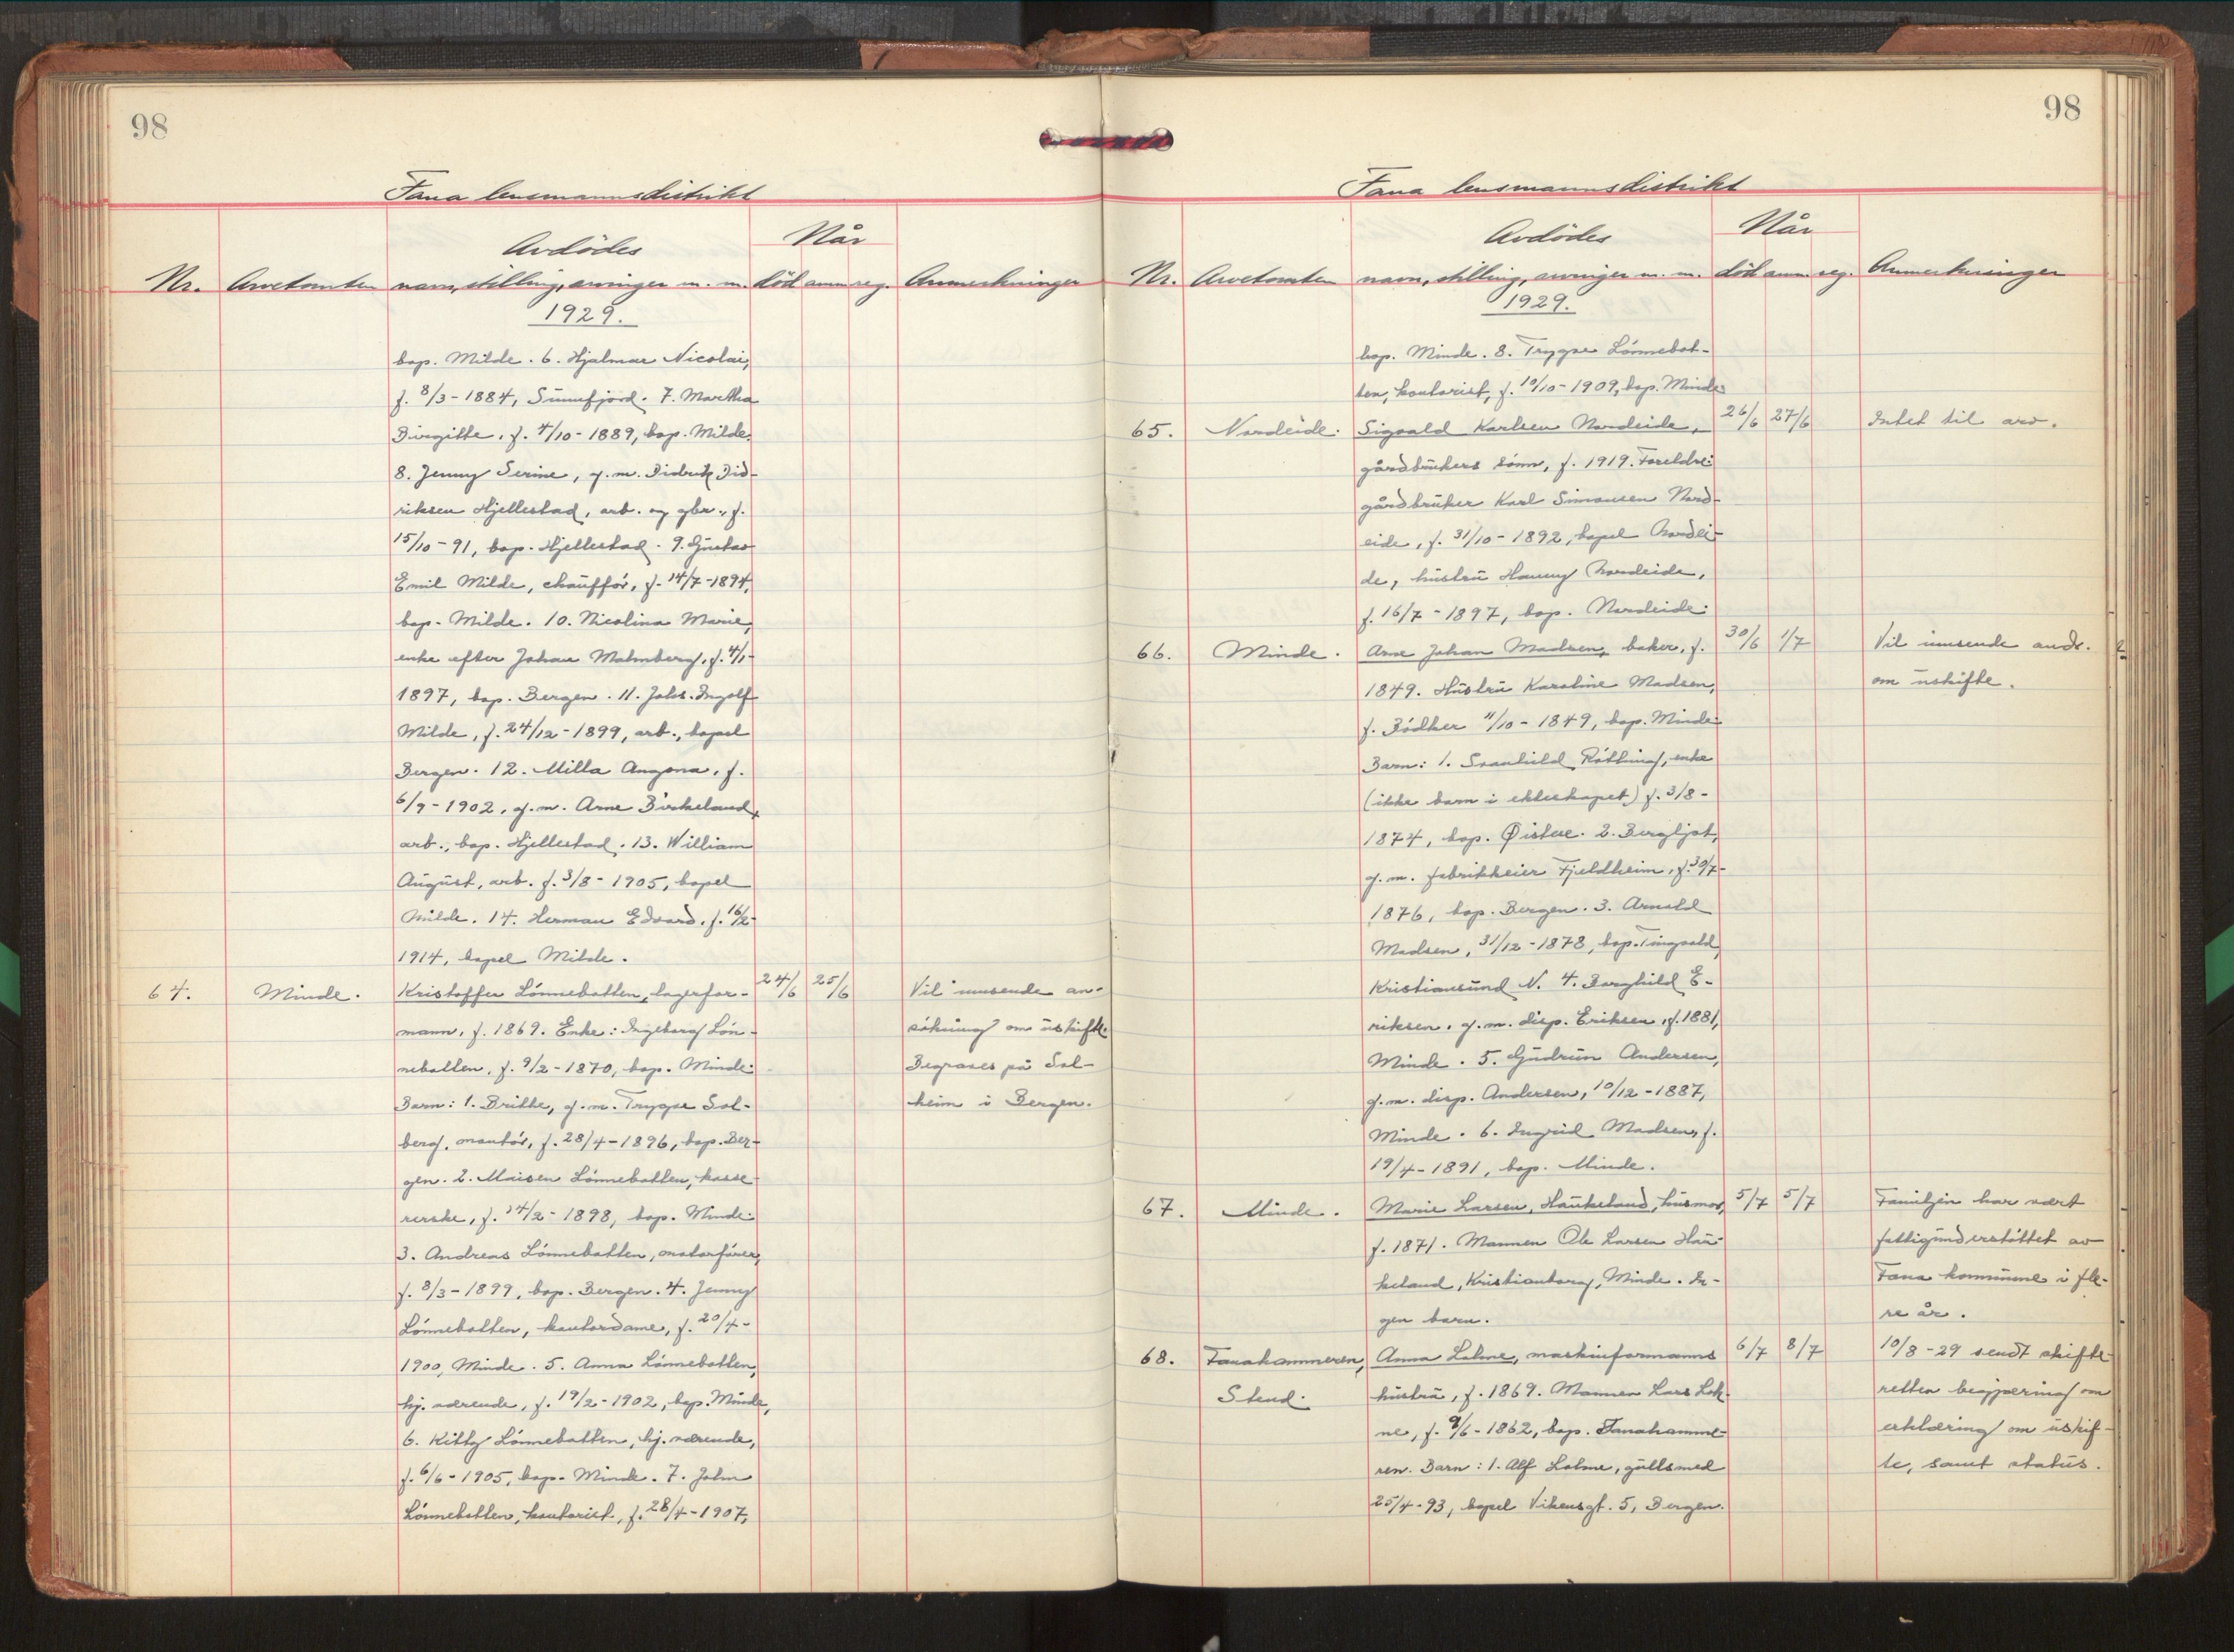 98
Fana lensmannsdistrikt
Avdödes
Når
Nr. Arvetomten navn, stilling, arvinger m. m. död anm. reg. Anmerkninger
1929.
bop. Milde. 6. Hjalmar Nicolai,
f. 8/3-1884, Sunnfjord. 7. Martha
Birgitte, f. 4/10-1889, bop. Milde.
8. Jenny Serine, g. m. Didrik Did-
riksen Hjellestad, arb. og gbr., f.
15/10-91, bop. Hjellestad. 9. Gustav
Emil Milde, chauffør, f. 14/7-1894,
bop. Milde. 10. Nicolina Marie,
enke efter Johan Malmberg, f. 4/1-
1897, bop. Bergen. 11. Johs. Ingolf
Milde, f. 24/12-1899, arb., bopel
Bergen. 12. Milla Angona, f.
6/9-1902, g. m. Arne Birkeland,
arb., bop. Hjellestad. 13. William
August, arb. f. 3/8-1905, bopel
Milde. 14. Herman Edvard, f. 16/2-
1914, bopel Milde.
64. Minde. Kristoffer Lönnebotten, lagerfor- 24/6 25/6 Vil innsende an-
mann, f. 1869. Enke: Ingeborg Lön- sökning om uskifte.
nebotten, f. 9/2-1870, bop. Minde. Begraves på Sol-
Barn: 1. Brithe, g. m. Trygve Sol- heim i Bergen.
berg, montör, f. 28/4-1896, bop. Ber-
gen. 2. Maisen Lönnebotten, kasse-
rerske, f. 14/2-1898, bop. Minde.
3. Andreas Lönnebotten, motorförer,
f. 8/3-1899, bop. Bergen. 4. Jenny
Lönnebotten, kontordame, f. 20/4-
1900, Minde. 5. Anna Lönnebotten,
hj. værende, f. 19/2-1902, bop. Minde,
6. Kitty Lönnebotten, hj. værende,
f. 6/6-1905, bop. Minde. 7. John
Lönnebotten, kontorist, f. 28/4-1907,
98
Fana lensmannsdistrikt
Avdödes
Når
Nr. Arvetomten navn, stilling, arvinger m. m. död anm. reg. Anmerkninger
1929.
bop. Minde. 8. Trygve Lönnebot-
ten, kontorist, f. 10/10-1909, bop. Minde.
65. Nordeide. Sigvald Karlsen Nordeide, 26/6 27/6 Intet til arv.
gårdbrukers sönn, f. 1919. Foreldre:
gårdbruker Karl Simonsen Nord-
eide, f. 31/10-1892, bopel Nordei-
de, hustru Hanny Nordeide,
f. 16/7-1897, bop. Nordeide.
66. Minde. Arne Johan Madsen, baker, f. 30/6 1/7 Vil innsende andr.
1849. Hustru Karoline Madsen, om uskifte.
f. Bödker 4/10-1849, bop. Minde.
Barn: 1. Svanhild Röttingj, enke
(ikke barn i ekteskapet) f. 3/8-
1874, bop. Øistese. 2. Bergljot,
g. m. fabrikkeier Fjeldheim, f. 30/7-
1876, bop. Bergen. 3. Arnold
Madsen, 31/12-1878, bop. Tingvold,
Kristiansund N. 4. Borghild E-
riksen, g. m. disp. Eriksen, f. 1881,
Minde. 5. Gudrun Andersen,
g. m. disp. Andersen, 10/12-1887,
Minde. 6. Ingrid Madsen, f.
19/4-1891, bop. Minde.
67. Minde. Marie Larsen, Haukeland, husmor, 5/7 5/7 Familjen har vært
f. 1871. Mannen Ole Larsen Hau- fattigunderstöttet av
keland, Kristianborg, Minde. In- Fana kommune i fle-
gen barn. re år.
68. Fanahammeren, Anna Lohne, maskinformanns 6/7 8/7 10/8-29 sendt skifte-
Stend. hustru, f. 1869. Mannen Lars Loh- retten begjæring om
ne, f. 9/6-1862, bop. Fanahamme- erklæring om uskif-
ren. Barn: 1. Alf Lohne, gullsmed te, samt status.
25/4-93, bopel Vikensgt. 5, Bergen.